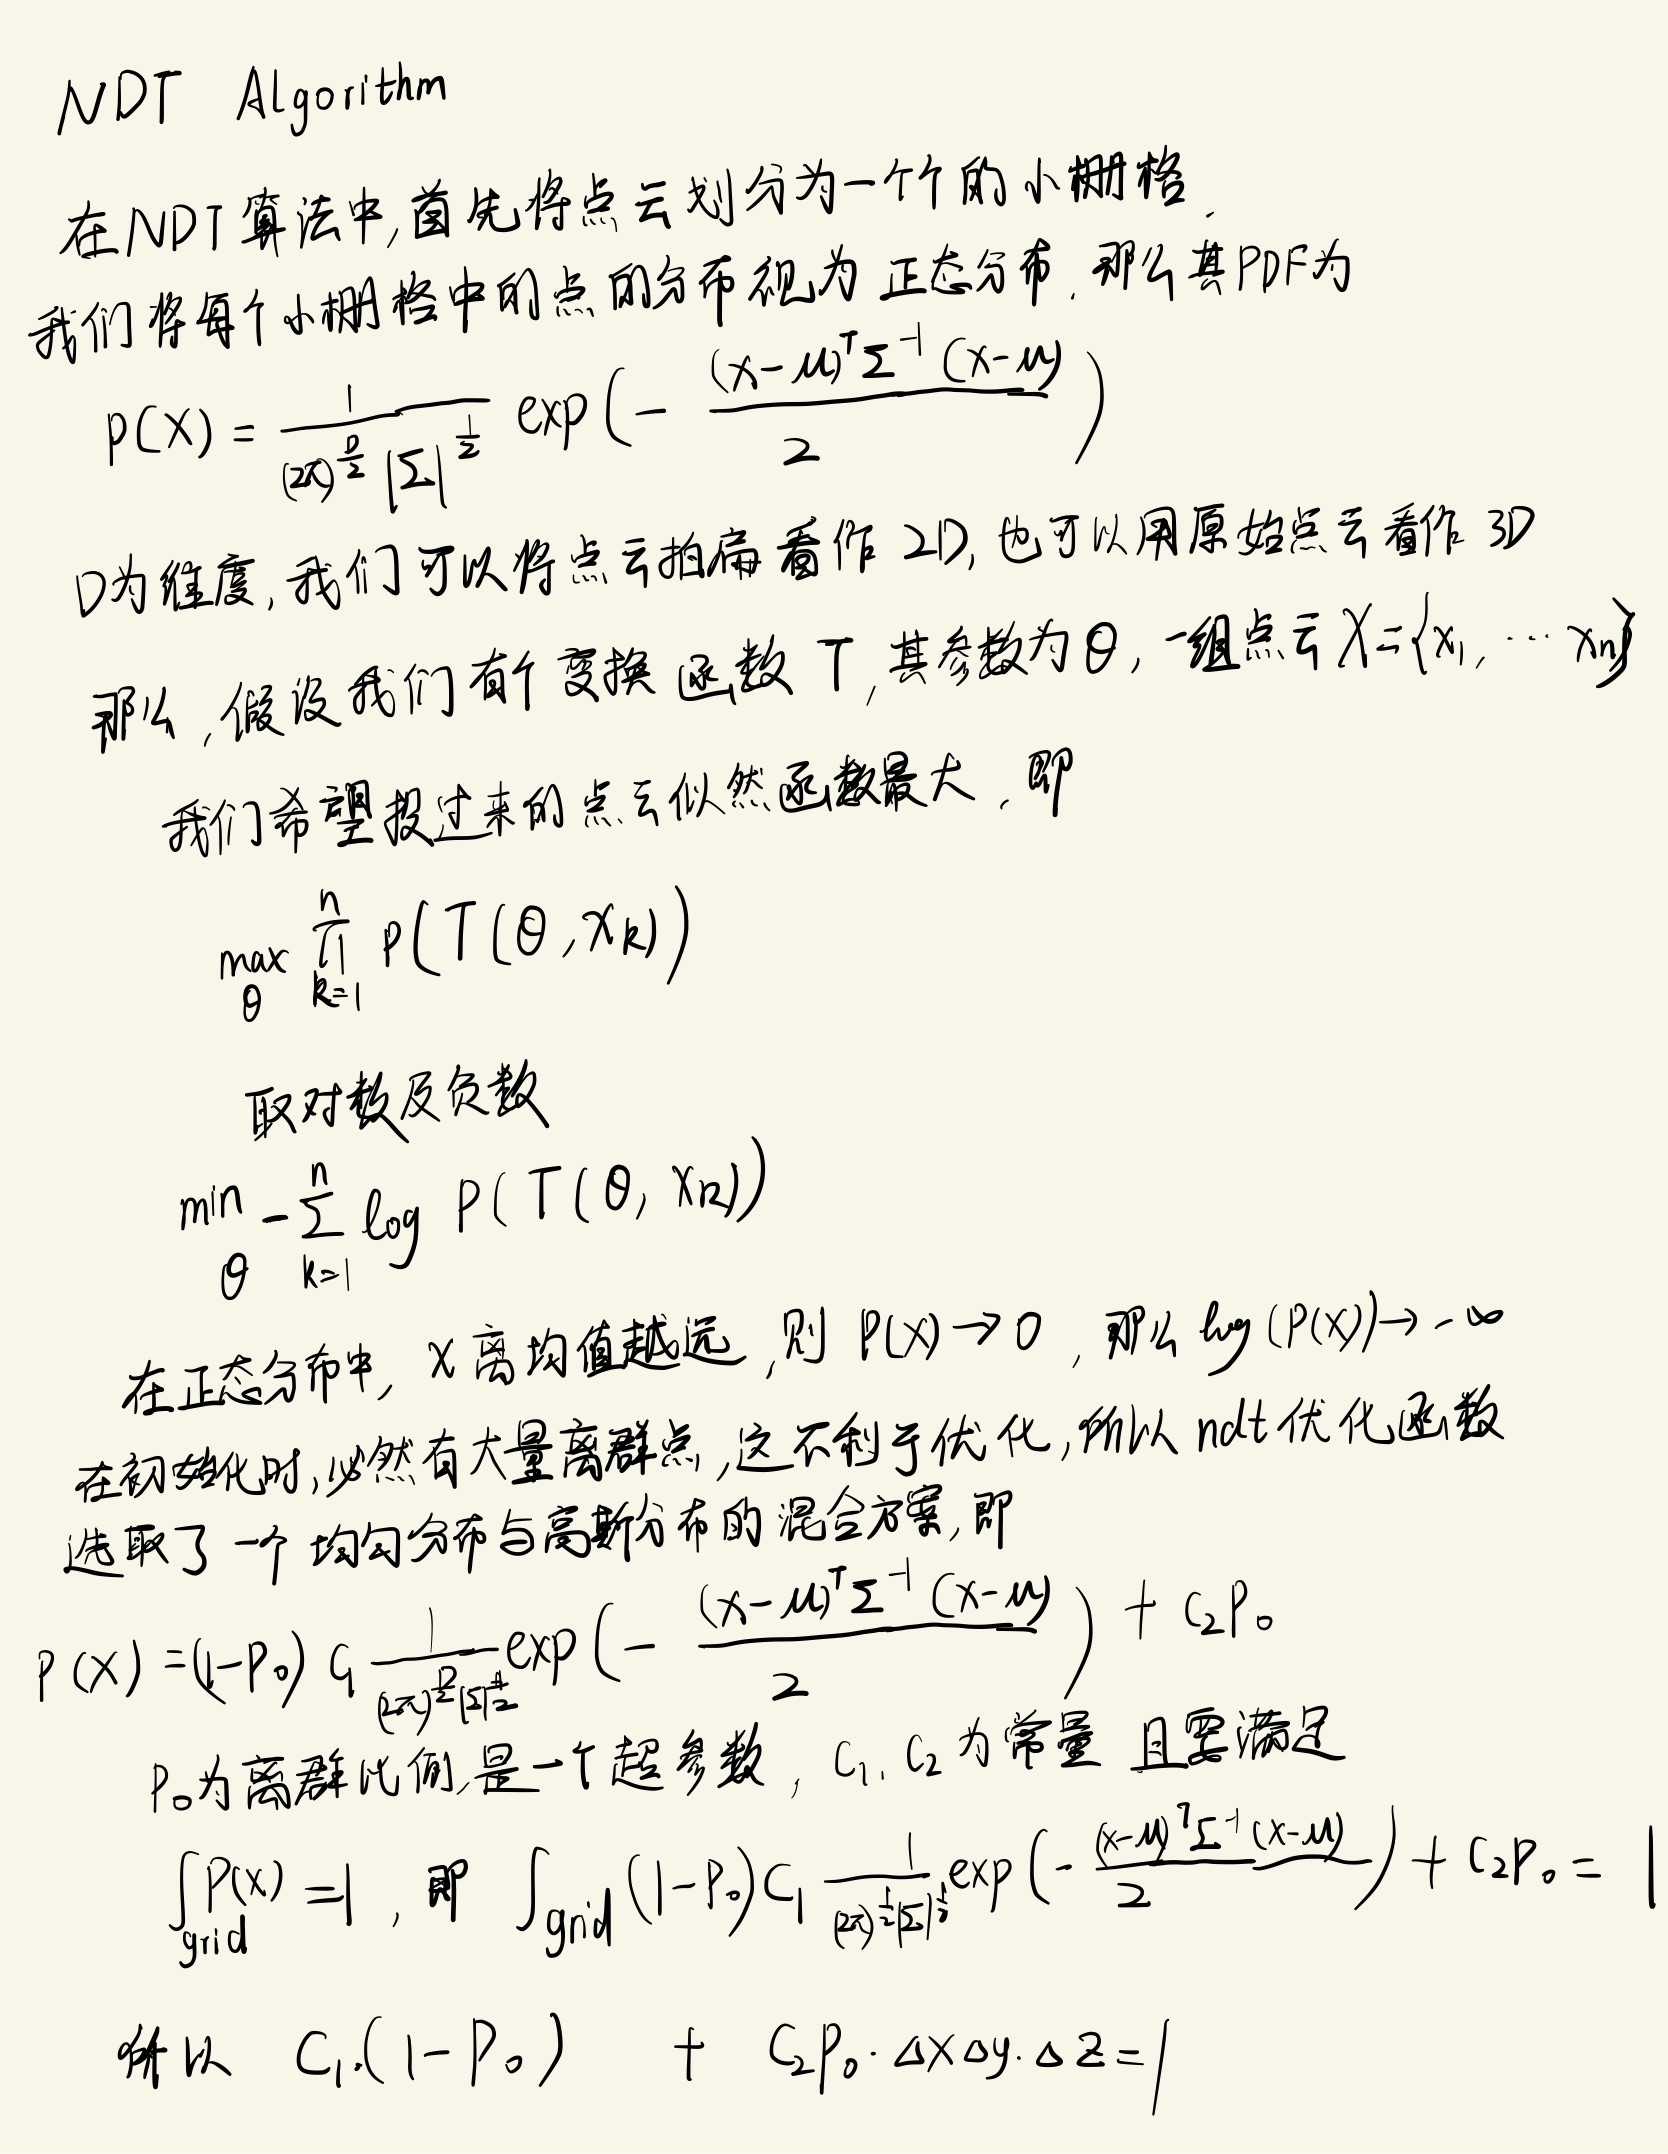 NDT Algorithm
在NDT算法中,首先将点云划分为一个个的小栅格.
我们将每个小栅格中的点的分布视为正态分布.那么其PDF为
P(X) = \frac{1}{(2π)^{\frac{D}{2}} |Σ|^{\frac{1}{2}}} exp(- \frac{(x-μ)^T Σ^{-1} (x-μ)}{2})
D为维度,我们可以将点云拍扁看作2D,也可以用原始点云看作3D
那么,假设我们有个变换函数T,其参数为θ,一组点云X={x_1, ... x_n}
我们希望投过来的点云似然函数最大.即
\max_{θ} \prod_{k=1}^{n} P(T(θ, x_k))
取对数及负数
\min_{θ} -\sum_{k=1}^{n} log P(T(θ, x_k))
在正态分布中,x离均值越远,则P(X)→0,那么log(P(X))→-∞
在初始化时,必然有大量离群点,这不利于优化,所以ndt优化函数
选取了一个均匀分布与高斯分布的混合方案,即
P(X) = (1-P_0) C_1 \frac{1}{(2π)^{\frac{D}{2}} |Σ|^{\frac{1}{2}}} exp(- \frac{(x-μ)^T Σ^{-1} (x-μ)}{2}) + C_2 P_0
P_0为离群比例,是一个超参数,C_1,C_2为常量 且要满足
\int_{grid} P(X) = 1,即 \int_{grid} (1-P_0) C_1 \frac{1}{(2π)^{\frac{1}{2}} |Σ|^{\frac{1}{2}}} exp(- \frac{(x-μ)^T Σ^{-1} (x-μ)}{2}) + C_2 P_0 = 1
所以 C_1·(1-P_0) + C_2 P_0·Δx Δy·Δz = 1